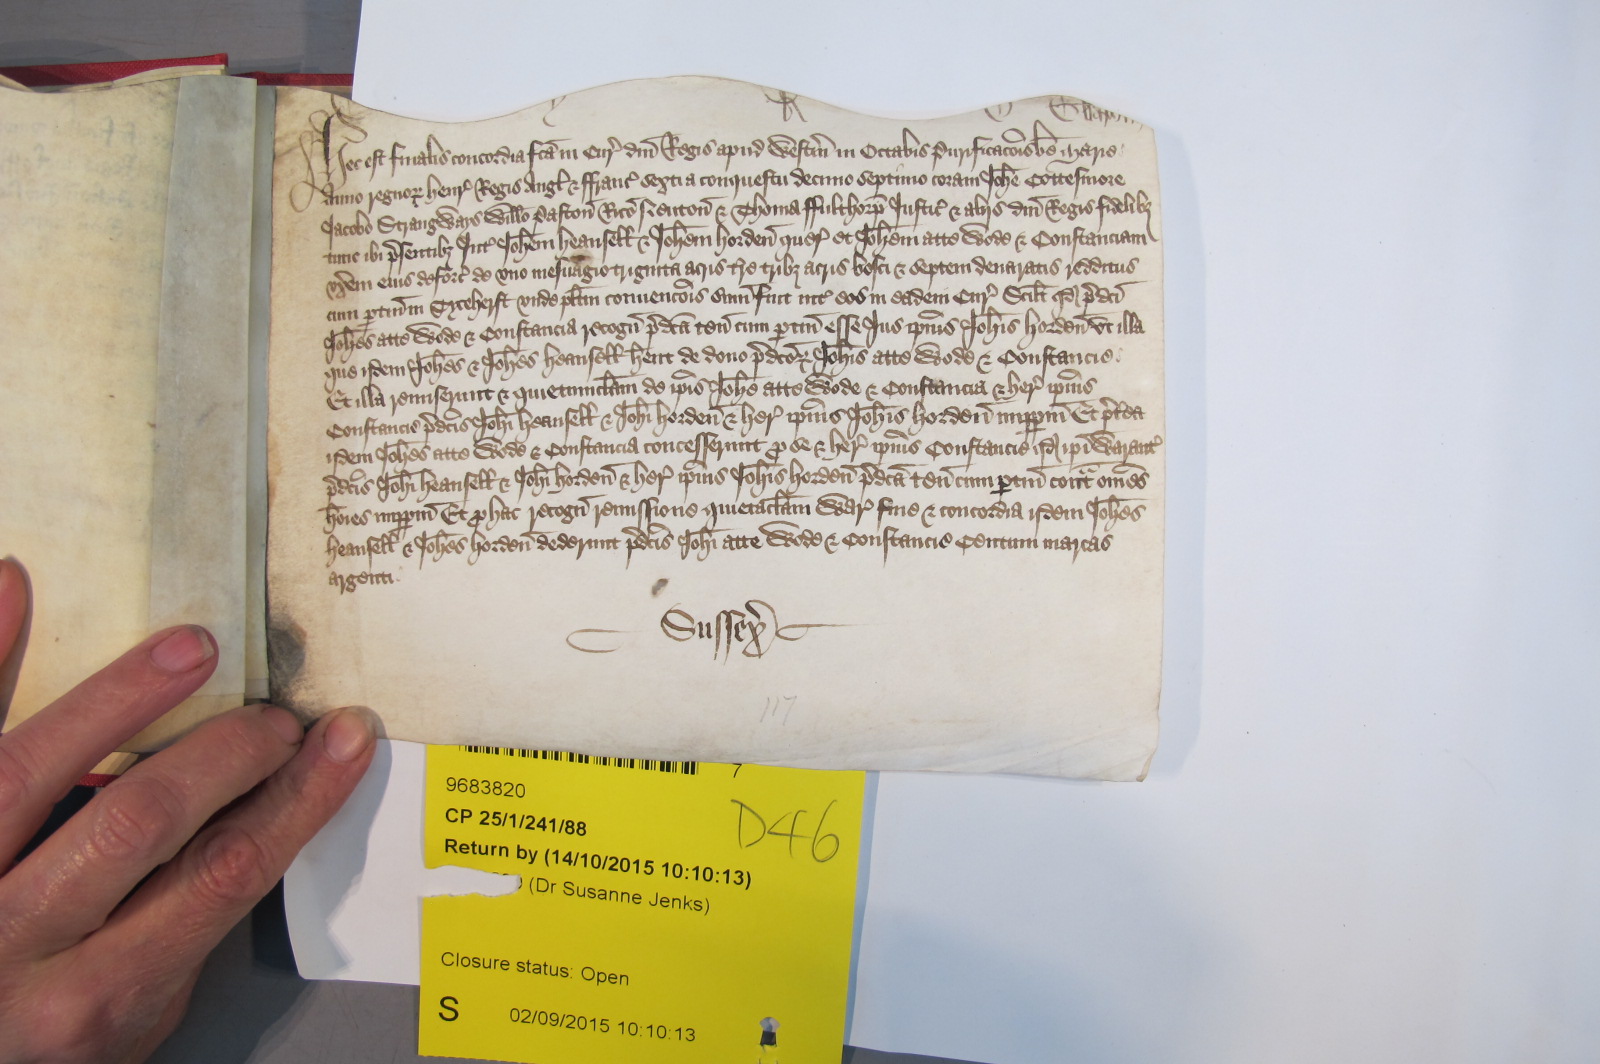 Hec est finalis concordia fca in Cur dni Regis apud Westm in Octabis Purificacois be Marie
Anno regnor Henr Regis Angl & ffranc sexti a conquestu decimo septimo coram Johe Cottesmore
Jacobo Strangways Willo Paston Rico Neuton & Thoma ffulthorp Justic & aliis dni Regis fidelibz
tunc ibi psentibz Int Johem Heansell & Johem Horden quer et Johem atte Wode & Constanciam
uxem eius deforc de uno mesuagio triginta acris tre tribz acris bosci & septem denaratis redditus
cum ptin in Tyceherst unde plitm convencois sum fuit int eos in eadem Cur Scilt qd pdci
Johes atte Wode & Constancia recogn pdca ten cum ptin esse Jus ipius Johis Horden ut illa
que idem Johes & Johes Heansell hent de dono pdcor Johis atte Wode & Constancie
Et illa remiserunt & quietumclam de ipis Johe atte Wode & Constancia & her ipius
Constancie pdcis Johi Heansell & Johi Horden & her ipius Johis Horden imppm Et pterea
idem Johes atte Wode & Constancia concesserunt p se & her ipius Constancie qd ipi Warant
pdcis Johi Heansell & Johi Horden & her ipius Johis Horden pdca ten cum ptin cont omes
hoies imppm Et p hac recogn remissione quietaclam War fine & concordia idem Johes
Heansell & Johes Horden dederunt pdcis Johi atte Wode & Constancie Centum marcas
argenti
Sussex
117
7
9683820
D46
CP 25/1/241/88
Return by (14/10/2015 10:10:13)
(Dr Susanne Jenks)
Closure status: Open
S 02/09/2015 10:10:13